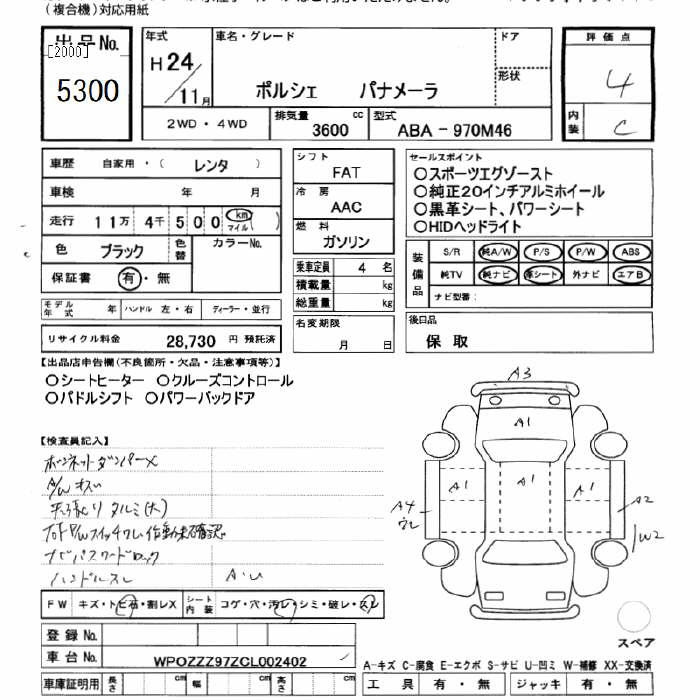 (複合機)対応用紙
出品No.
[2000]
5300
年式
H24/11月
車名・グレード
ポルシェ パナメーラ
ドア
形状
評価点
4
内装
C
2WD・4WD
排気量
3600 cc
型式
ABA-970M46
車歴 自家用・(レンタ)
車検 年 月
走行 11万4千500 km マイル
色 ブラック 色替 カラーNo.
保証書 有・無
モデル年式 年 ハンドル 左・右 ディーラー・並行
リサイクル料金 28,730 円 預託済
シフト
FAT
冷房
AAC
燃料
ガソリン
乗車定員 4 名
積載量 kg
総重量 kg
名変期限
月 日
セールスポイント
○スポーツエグゾースト
○純正20インチアルミホイール
○黒革シート、パワーシート
○HIDヘッドライト
装備品
S/R 純A/W P/S P/W ABS
純TV 純ナビ 革シート 外ナビ エアB
ナビ型番:
後日品
保取
【出品店申告欄(不良箇所・欠品・注意事項等)】
○シートヒーター ○クルーズコントロール
○パドルシフト ○パワーバックドア
【検査員記入】
ボンネットダンパーX
A/Wキズ
天張りタルミ(大)
ナビパスワードロック
ハンドルスレ
A・U
A3
A1
A1 A1 A1
A4
A2
W2
FW キズ・トビ石・割レX シート内装 コゲ・穴・汚レ・シミ・破レ・スレ
登録No.
車台No. WPOZZZ97ZCL002402
スペア
A-キズ C-腐食 E-エクボ S-サビ U-凹ミ W-補修 XX-交換済
車庫証明用 長さ cm 幅 cm 高さ cm
工具 有・無 ジャッキ 有・無